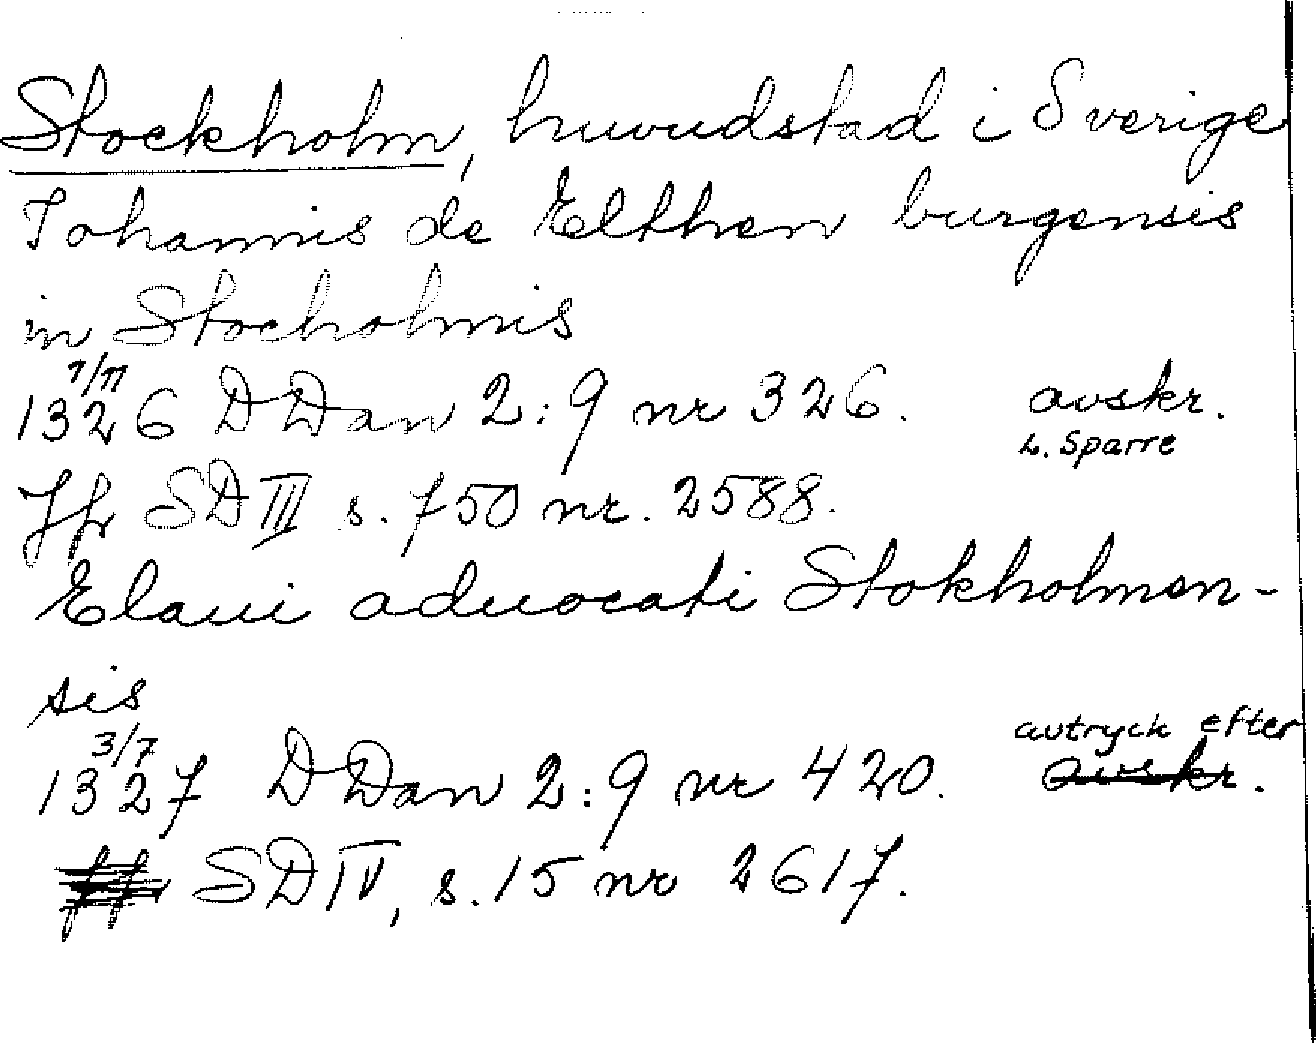 Stockholm, huvudstad i Sverige
Johannis de Elthen burgensis
in Stocholmis
7/11
1326 DDan 2:9 nr 326. avskr.
L. Sparre
Jfr SD III s. 750 nr. 2588.
Elaui aduocati Stokholmen-
sis
3/7 avtryck efter
1327 DDan 2:9 nr 420. avskr.
jfr SD IV, s. 15 nr 2617.